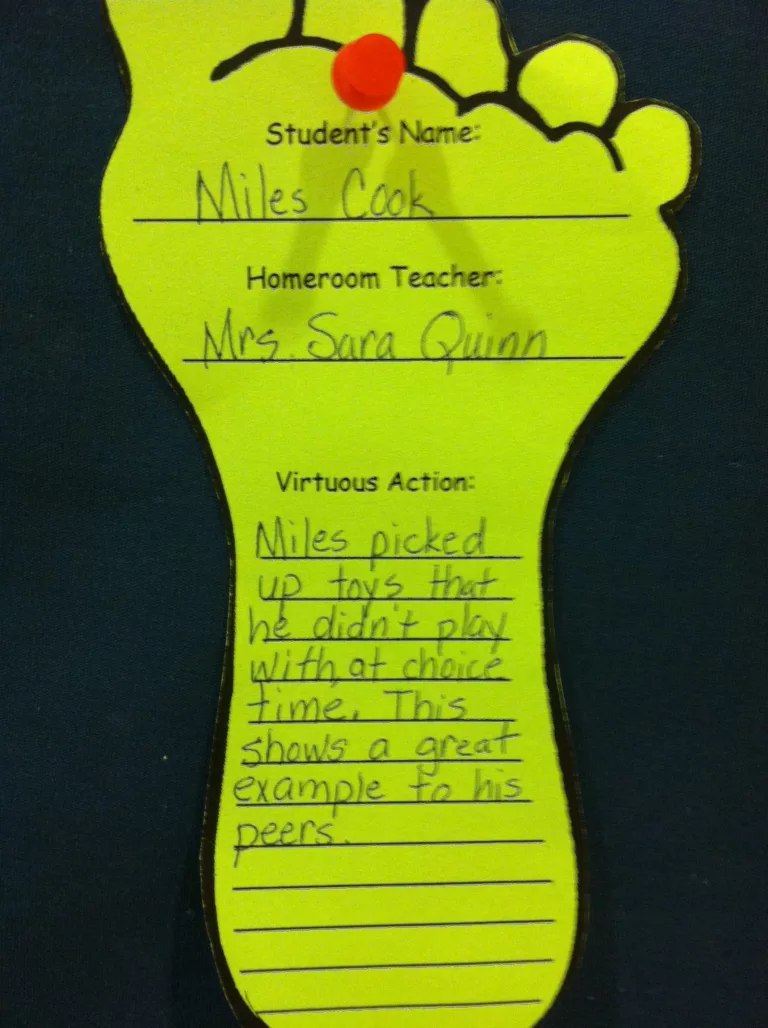 Student's Name:
Miles Cook
Homeroom Teacher:
Mrs. Sara Quinn
Virtuous Action:
Miles picked
up toys that
he didn't play
with at choice
time. This
shows a great
example to his
peers.